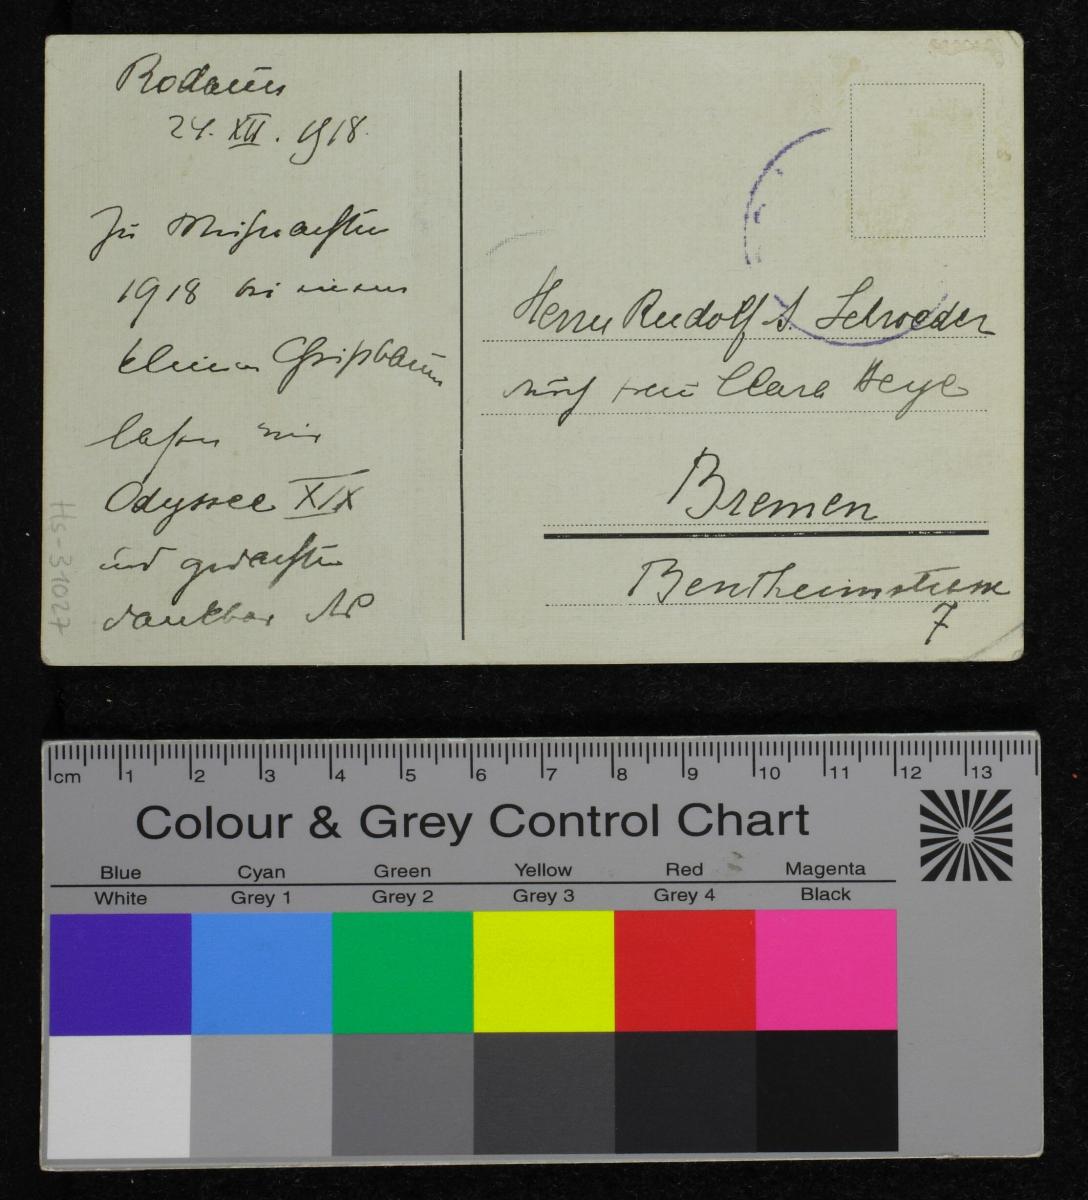 Rodaun
24. XII. 1918.
Zu Weihnachten
1918 bei einem
kleinen Christbaum
lasen wir
Odyssee XIX
und gedachten
dankbar
Hs-31027
Herrn Rudolf A. Schroeder
durch Frau Clara Heye
Bremen
Bentheimstrasse
7
cm 1 2 3 4 5 6 7 8 9 10 11 12 13
Colour & Grey Control Chart
Blue Cyan Green Yellow Red Magenta
White Grey 1 Grey 2 Grey 3 Grey 4 Black